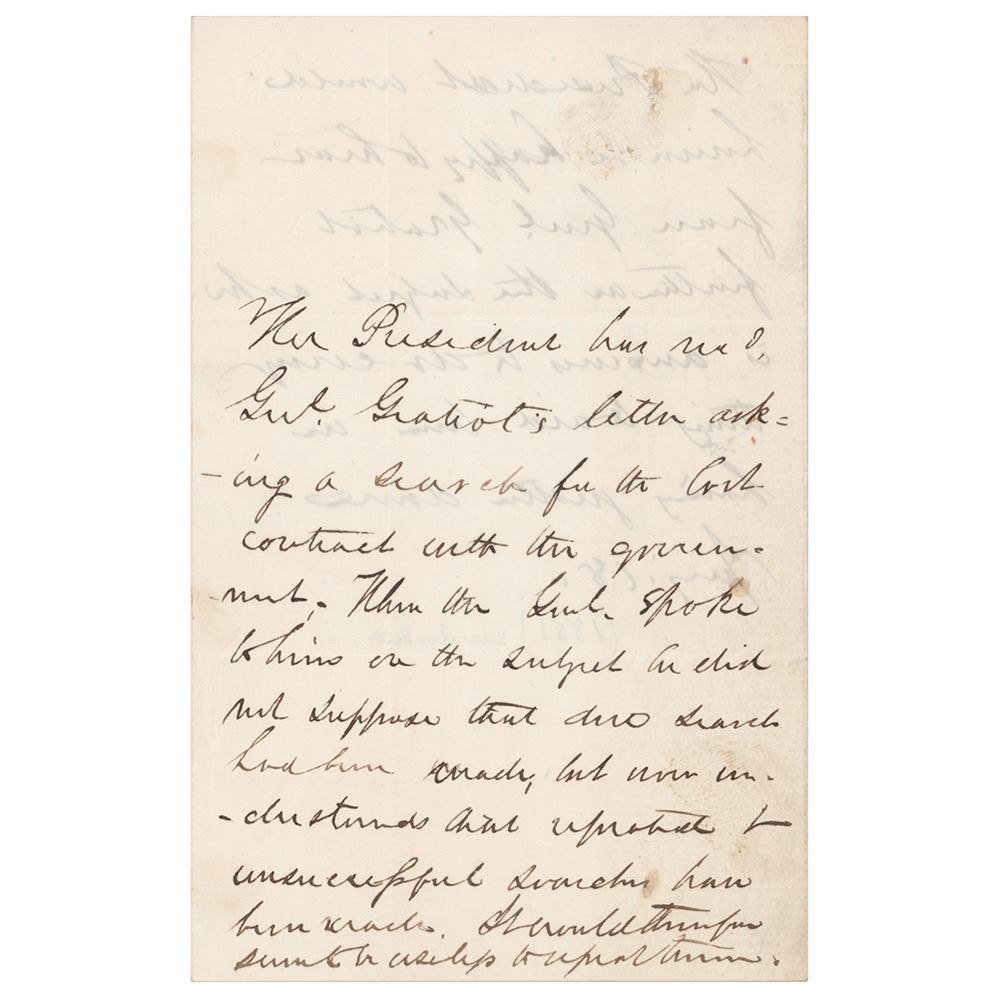 The President has rec'd.
Genl. Gratiot's letter ask=
-ing a search for the lost
contract with the govern-
ment. When the Genl. spoke
to him on the subject he did
not suppose that due search
had been made, but now un-
-derstands that repeated &
unsuccessful searches have
been made. It would therefore
seem to be useless to repeat them.